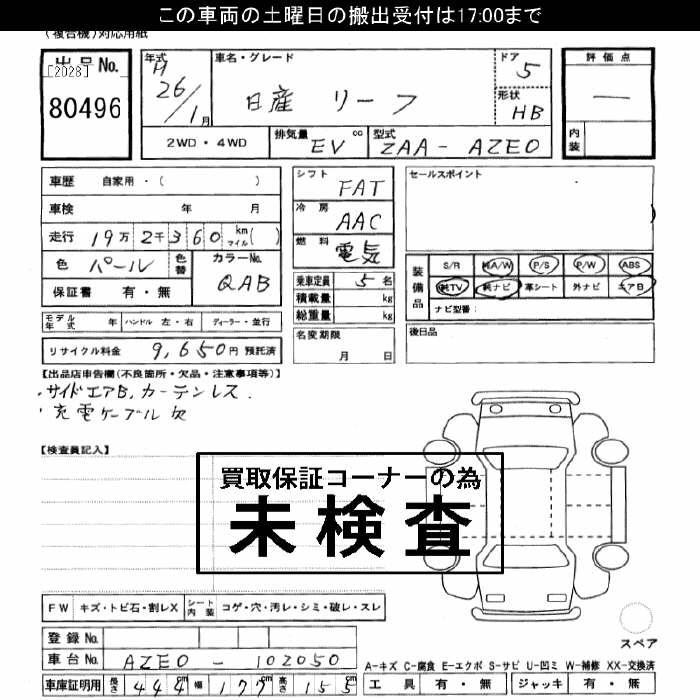 この車両の土曜日の搬出受付は17:00まで
(複合機)対応用紙
出品No.
[2028]
80496
年式 H 26/1月
車名・グレード
日産 リーフ
ドア 5
形状 HB
評価点
—
内装
2WD・4WD
排気量 EV cc
型式 ZAA-AZE0
車歴 自家用・( )
車検 年 月
走行 19万2千360 km マイル( )
色 パール 色替
カラーNo. QAB
保証書 有・無
モデル年式 年 ハンドル 左・右 ディーラー・並行
リサイクル料金 9,650円 預託済
シフト FAT
冷房 AAC
燃料 電気
乗車定員 5名
積載量 kg
総重量 kg
名変期限 月 日
セールスポイント
装備品
S/R 純A/W P/S P/W ABS
純TV 純ナビ 革シート 外ナビ エアB
ナビ型番:
後日品
【出品店申告欄(不良箇所・欠品・注意事項等)】
・サイドエアB,カーテンレス.
・充電ケーブル欠
【検査員記入】
買取保証コーナーの為
未検査
FW キズ・トビ石・割レX シート内装 コゲ・穴・汚レ・シミ・破レ・スレ
登録No.
車台No. AZE0-102050
車庫証明用 長さ 444cm 幅 177cm 高さ 155cm
スペア
A-キズ C-腐食 E-エクボ S-サビ U-凹ミ W-補修 XX-交換済
工具 有・無 ジャッキ 有・無